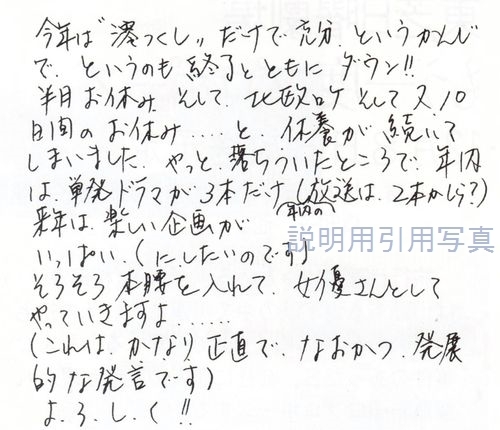 今年は"澪つくし"だけで充分、というかんじ
で、というのも終了とともにダウン!!
半月お休み、そして、北欧ロケそして又10
日間のお休み....と、休養が続いて
しまいました。やっと、落ちついたところで、年内
は、単発ドラマが3本だけ(年内の放送は、2本かしら?)
来年は、楽しい企画が
いっぱい。(にしたいのです)
説明用引用写真
そろそろ本腰を入れて、女優さんとして
やっていきますよ......
(これは、かなり正直で、なおかつ、発展
的な発言です)
よ、ろ、し、く!!